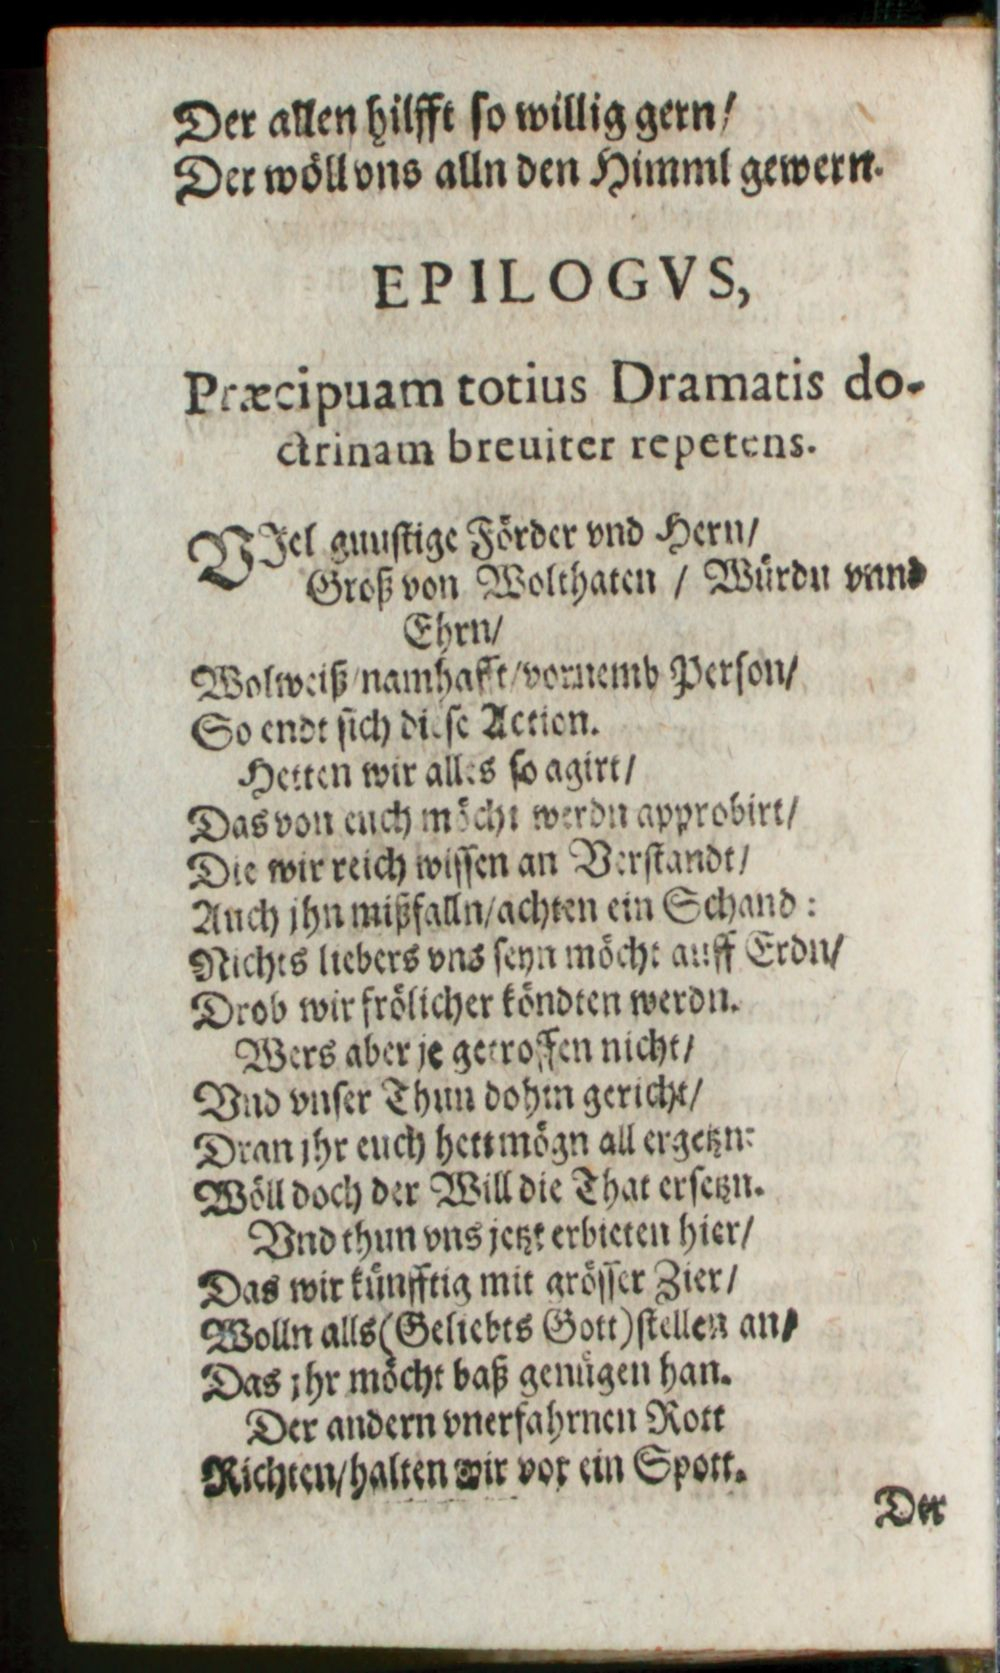 Der allen hilfft so willig gern/
Der wöll vns alln den Himml gewern.
EPILOGVS,
Præcipuam totius Dramatis do-
ctrinam breuiter repetens.
VJel gunstige Förder vnd Hern/
Groß von Wolthaten / Würdn vnnd
Ehrn/
Wolweiß/namhafft/vornemb Person/
So endt sich diese Action.
Hetten wir alles so agirt/
Das von euch möcht werdn approbirt/
Die wir reich wissen an Verstandt/
Auch jhn mißfalln/achten ein Schand:
Nichts liebers vns seyn möcht auff Erdn/
Drob wir frölicher köndten werdn.
Wers aber je getroffen nicht/
Vnd vnser Thun dohin gericht/
Dran jhr euch hett mögn all ergetzn:
Wöll doch der Will die That ersetzn.
Vnd thun vns jetzt erbieten hier/
Das wir künfftig mit grösser Zier/
Wolln alls(Geliebts Gott)stellen an/
Das jhr möcht baß genügen han.
Der andern vnerfahrnen Rott
Richten/halten wir vor ein Spott.
Der